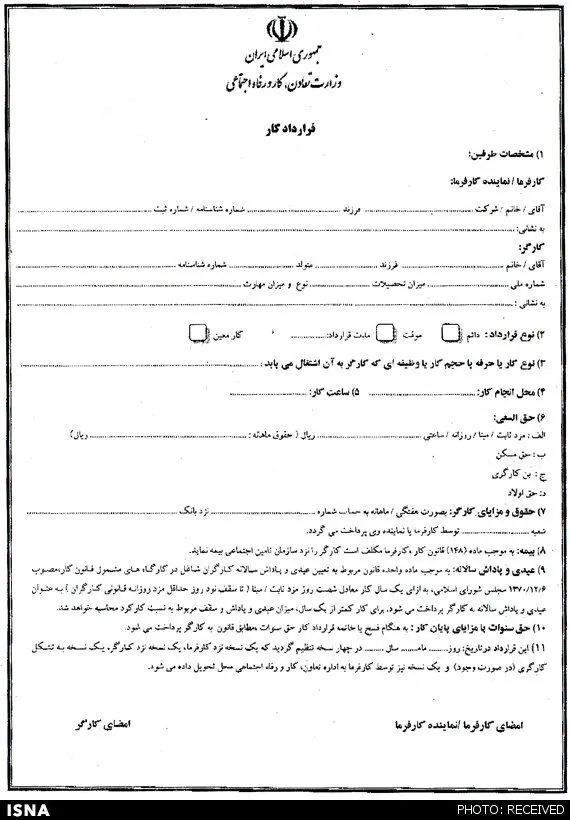 جمهوری اسلامی ایران
وزارت تعاون، کار و رفاه اجتماعی
قرارداد کار
۱) مشخصات طرفین:
کارفرما / نماینده کارفرما:
آقای / خانم / شرکت ........................ فرزند ........................ شماره شناسنامه / شماره ثبت ........................
به نشانی: ........................
کارگر:
آقای / خانم ........................ فرزند ........................ متولد ........................ شماره شناسنامه ........................
شماره ملی ........................ میزان تحصیلات ........................ نوع و میزان مهارت ........................
به نشانی : ........................
۲) نوع قرارداد: دائم موقت مدت قرارداد: ........................ کار معین
۳) نوع کار یا حرفه یا حجم کار یا وظیفه ای که کارگر به آن اشتغال می یابد : ........................
۴) محل انجام کار: ........................ ۵) ساعت کار: ........................
۶) حق السعی:
الف: مزد ثابت / مبنا / روزانه / ساعتی ........................ ریال ( حقوق ماهانه : ........................ ریال)
ب: حق مسکن
ج: بن کارگری
د: حق اولاد
۷) حقوق و مزایای کارگر: بصورت هفتگی / ماهانه به حساب شماره ........................ نزد بانک ........................
شعبه ........................ توسط کارفرما یا نماینده وی پرداخت می گردد.
۸) بیمه: به موجب ماده (۱۴۸) قانون کار ،کارفرما مکلف است کارگر را نزد سازمان تامین اجتماعی بیمه نماید.
۹) عیدی و پاداش سالانه: به موجب ماده واحده قانون مربوط به تعیین عیدی و پاداش سالانه کارگران شاغل در کارگاه های مشمول قانون کار،مصوب
۱۳۷۰/۱۲/۶ مجلس شورای اسلامی، به ازای یک سال کار معادل شصت روز مزد ثابت / مبنا ( تا سقف نود روز حداقل مزد روزانه قانونی کارگران ) به عنوان
عیدی و پاداش سالانه به کارگر پرداخت می شود. برای کار کمتر از یک سال، میزان عیدی و پاداش و سقف مربوط به نسبت کارکرد محاسبه خواهد شد.
۱۰) حق سنوات یا مزایای پایان کار : به هنگام فسخ یا خاتمه قرارداد کار حق سنوات مطابق قانون به کارگر پرداخت می شود.
۱۱) این قرارداد درتاریخ: روز......... ماه........ سال ......... در چهار سخه تنظیم گردید که یک نسخه نزد کارفرما، یک نسخه نزد کارگر، یک نسخه به تشکل
کارگری (در صورت وجود) و یک نسخه نیز توسط کارفرما به اداره تعاون، کار و رفاه اجتماعی محل تحویل داده می شود.
امضای کارفرما /نماینده کارفرما امضای کارگر
ISNA PHOTO: RECEIVED